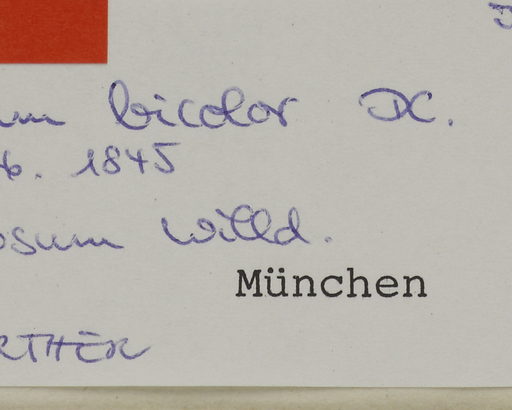 um bicolor DC.
b. 1845
osum Willd.
München
RTHER